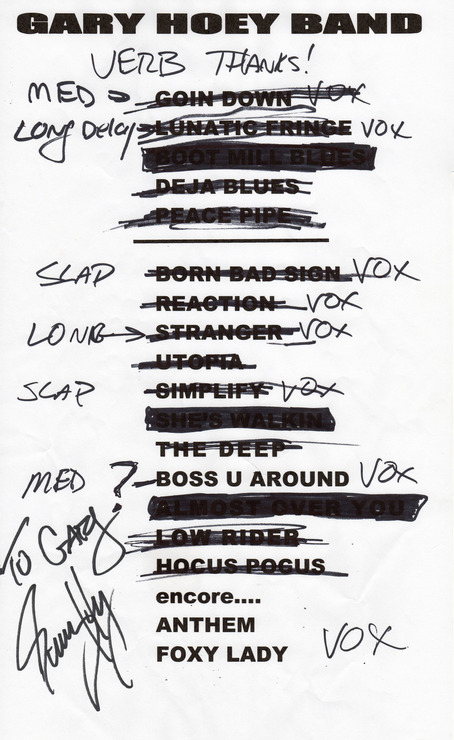 GARY HOEY BAND
VERB THANKS!
MED → GOIN DOWN VOX
LONG DELAY → LUNATIC FRINGE VOX
BOOT MILL BLUES
DEJA BLUES
PEACE PIPE
SLAP BORN BAD SIGN VOX
REACTION VOX
LONG → STRANGER VOX
UTOPIA
SLAP SIMPLIFY VOX
SHE'S WALKIN
THE DEEP
MED ? BOSS U AROUND VOX
ALMOST OVER YOU
TO GARY!
LOW RIDER
HOCUS POCUS
encore....
ANTHEM
FOXY LADY VOX